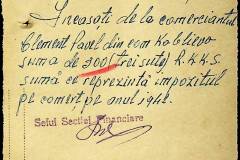 Încasați de la comerciantul
Clement Pavel din com Kobliewo
suma de 300 (trei sute) R.K.K.S.
sumă ce reprezintă impozitul
pe comerț pe anul 1942.
Șeful Secției Financiare